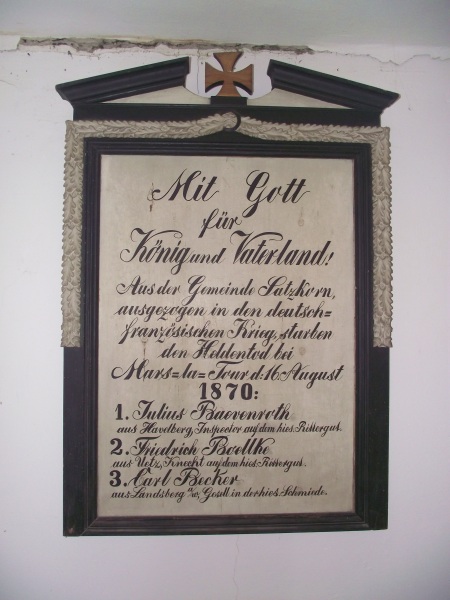 Mit Gott
für
König und Vaterland!
Aus der Gemeinde Satzkorn,
ausgezogen in den deutsch=
französischen Krieg, starben
den Heldentod bei
Mars=la=Tour d: 16. August
1870:
1. Julius Baevenroth
aus Havelberg, Inspector auf dem hies. Rittergut.
2. Friedrich Boellke
aus Uetz, Knecht auf dem hies. Rittergut.
3. Carl Becker
aus Landsberg a/w, Gesell in der hies. Schmiede.